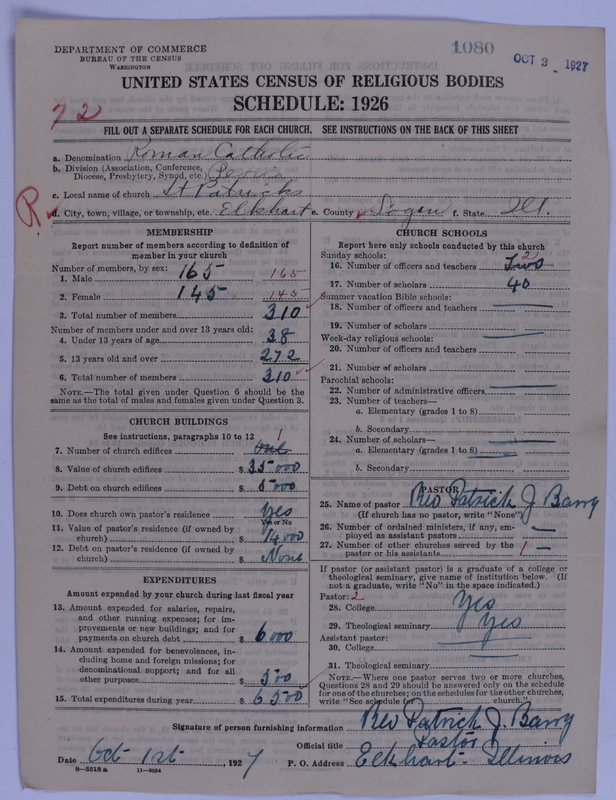 DEPARTMENT OF COMMERCE
BUREAU OF THE CENSUS
WASHINGTON
1080
OCT 3 1927
UNITED STATES CENSUS OF RELIGIOUS BODIES
SCHEDULE: 1926
72
FILL OUT A SEPARATE SCHEDULE FOR EACH CHURCH. SEE INSTRUCTIONS ON THE BACK OF THIS SHEET
a. Denomination Roman Catholic
b. Division (Association, Conference, Diocese, Presbytery, Synod, etc.) Peoria
c. Local name of church St Patricks
R
d. City, town, village, or township, etc. Elkhart e. County Logan f. State Ill.
MEMBERSHIP
Report number of members according to definition of
member in your church
Number of members, by sex:
1. Male 165 165
2. Female 145 145
3. Total number of members 310
Number of members under and over 13 years old:
4. Under 13 years of age 38
5. 13 years old and over 272
6. Total number of members 310
NOTE.—The total given under Question 6 should be the
same as the total of males and females given under Question 3.
CHURCH BUILDINGS
See instructions, paragraphs 10 to 12
7. Number of church edifices one 1
8. Value of church edifices $35000
9. Debt on church edifices $5000
10. Does church own pastor's residence yes
Yes or No
11. Value of pastor's residence (if owned by
church) $14000
12. Debt on pastor's residence (if owned by
church) $None
EXPENDITURES
Amount expended by your church during last fiscal year
13. Amount expended for salaries, repairs,
and other running expenses; for im-
provements or new buildings; and for
payments on church debt $6000
14. Amount expended for benevolences, in-
cluding home and foreign missions; for
denominational support; and for all
other purposes $500
15. Total expenditures during year $6500
CHURCH SCHOOLS
Report here only schools conducted by this church
Sunday schools:
16. Number of officers and teachers Two 2
17. Number of scholars 40
Summer vacation Bible schools:
18. Number of officers and teachers
19. Number of scholars
Week-day religious schools:
20. Number of officers and teachers
21. Number of scholars
Parochial schools:
22. Number of administrative officers
23. Number of teachers—
a. Elementary (grades 1 to 8)
b. Secondary
24. Number of scholars—
a. Elementary (grades 1 to 8)
b. Secondary
PASTOR
25. Name of pastor Rev Patrick J Barry
(If church has no pastor, write "None")
26. Number of ordained ministers, if any, em-
ployed as assistant pastors —
27. Number of other churches served by the
pastor or his assistants 1 —
If pastor (or assistant pastor) is a graduate of a college or
theological seminary, give name of institution below. (If
not a graduate, write "No" in the space indicated.)
Pastor: 2
28. College Yes
29. Theological seminary Yes
Assistant pastor:
30. College
31. Theological seminary
NOTE.—Where one pastor serves two or more churches,
Questions 28 and 29 should be answered only on the schedule
for one of the churches; on the schedules for the other churches,
write "See schedule for church."
Signature of person furnishing information Rev Patrick J. Barry
Official title Pastor
Date Oct 1st, 1927 P. O. Address Elkhart Illinois
8-5518a 11-9084